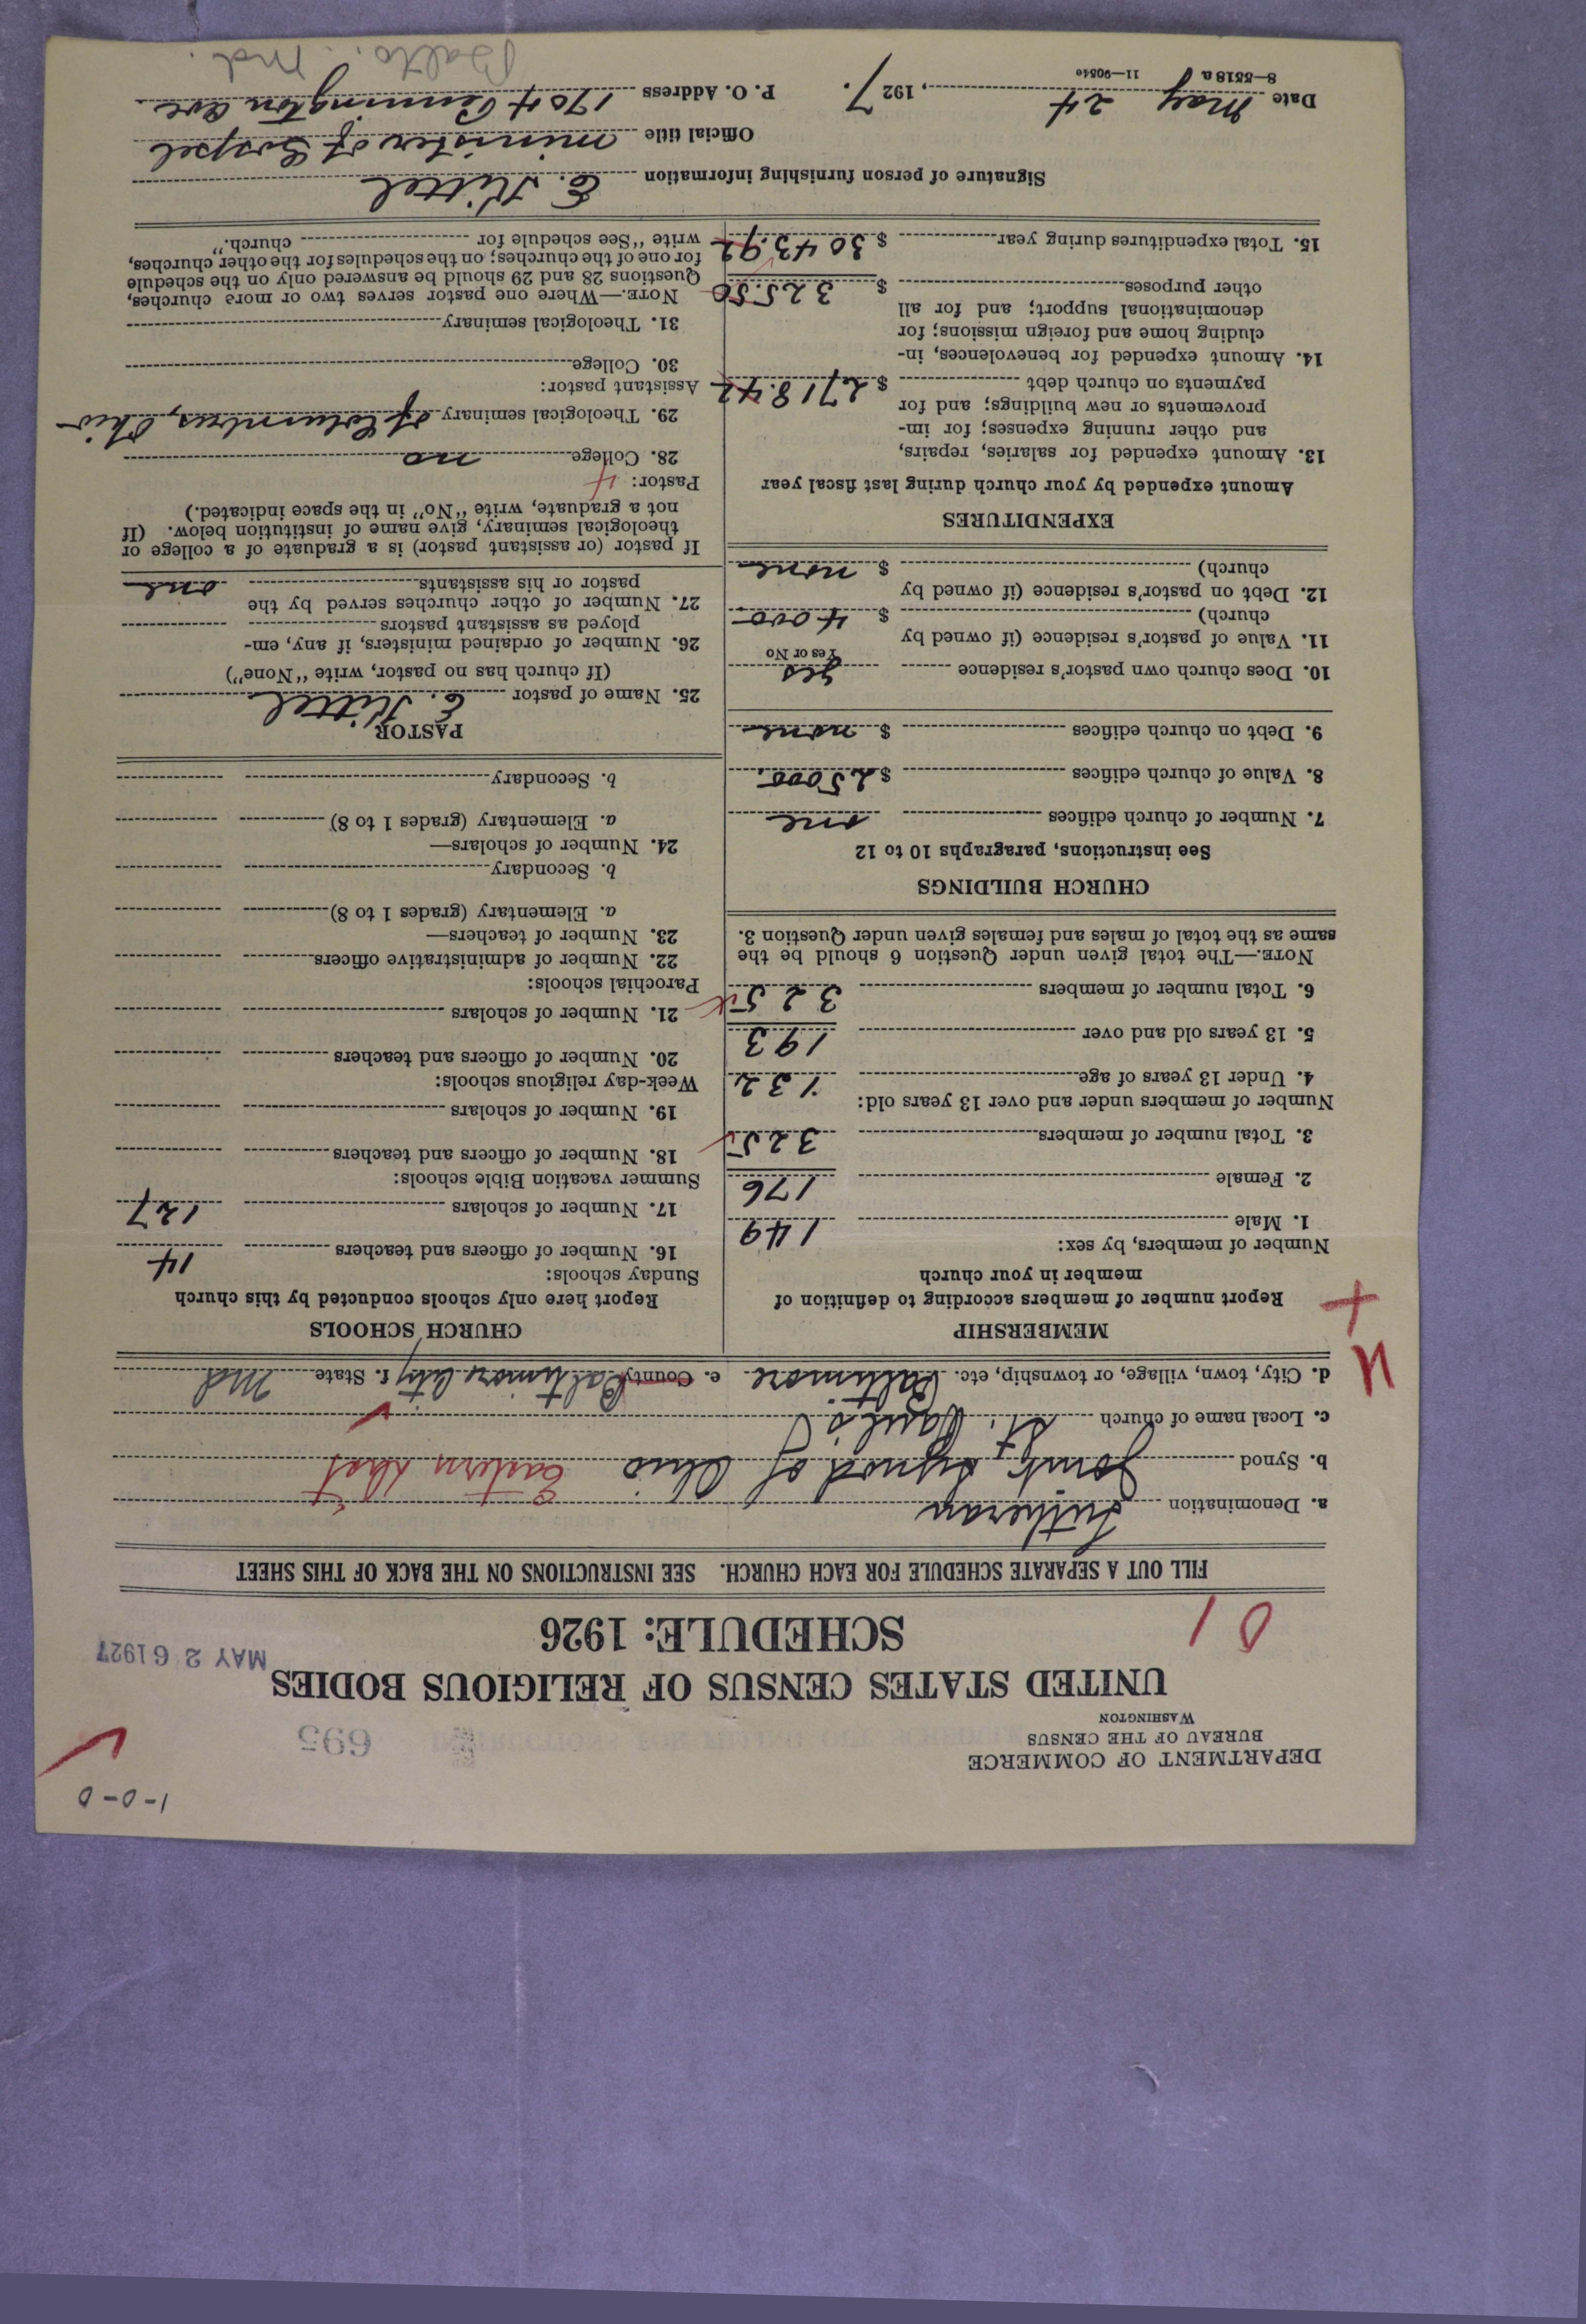 1-0-0
DEPARTMENT OF COMMERCE
BUREAU OF THE CENSUS
WASHINGTON
695
UNITED STATES CENSUS OF RELIGIOUS BODIES
MAY 26 1927
SCHEDULE: 1926
01
FILL OUT A SEPARATE SCHEDULE FOR EACH CHURCH. SEE INSTRUCTIONS ON THE BACK OF THIS SHEET
a. Denomination Lutheran
b. Synod Joint Synod of Ohio Eastern Dist
c. Local name of church St. Paul's
d. City, town, village, or township, etc. Baltimore e. County Baltimore City f. State Md
MEMBERSHIP
Report number of members according to definition of
member in your church
Number of members, by sex:
1. Male 149
2. Female 176
3. Total number of members 325
Number of members under and over 13 years old:
4. Under 13 years of age 132
5. 13 years old and over 193
6. Total number of members 325
NOTE.—The total given under Question 6 should be the
same as the total of males and females given under Question 3.
CHURCH BUILDINGS
See instructions, paragraphs 10 to 12
7. Number of church edifices one
8. Value of church edifices $ 25000.
9. Debt on church edifices $ none
10. Does church own pastor's residence yes
Yes or No
11. Value of pastor's residence (if owned by
church) $ 4000
12. Debt on pastor's residence (if owned by
church) $ none
EXPENDITURES
Amount expended by your church during last fiscal year
13. Amount expended for salaries, repairs,
and other running expenses; for im-
provements or new buildings; and for
payments on church debt $ 2718.42
14. Amount expended for benevolences, in-
cluding home and foreign missions; for
denominational support; and for all
other purposes $ 325.50
15. Total expenditures during year $ 3043.92
CHURCH SCHOOLS
Report here only schools conducted by this church
Sunday schools:
16. Number of officers and teachers 14
17. Number of scholars 127
Summer vacation Bible schools:
18. Number of officers and teachers
19. Number of scholars
Week-day religious schools:
20. Number of officers and teachers
21. Number of scholars
Parochial schools:
22. Number of administrative officers
23. Number of teachers—
a. Elementary (grades 1 to 8)
b. Secondary
24. Number of scholars—
a. Elementary (grades 1 to 8)
b. Secondary
PASTOR
25. Name of pastor E. Kittel
(If church has no pastor, write "None")
26. Number of ordained ministers, if any, em-
ployed as assistant pastors
27. Number of other churches served by the
pastor or his assistants one
If pastor (or assistant pastor) is a graduate of a college or
theological seminary, give name of institution below. (If
not a graduate, write "No" in the space indicated.)
Pastor: 4
28. College no
29. Theological seminary of Columbus, Ohio
Assistant pastor:
30. College
31. Theological seminary
NOTE.—Where one pastor serves two or more churches,
Questions 28 and 29 should be answered only on the schedule
for one of the churches; on the schedules for the other churches,
write "See schedule for church."
Signature of person furnishing information E. Kittel
Official title minister of Gospel
Date May 24, 1927. P. O. Address 1704 Pennington Ave
Balto. Md.
8—5518 a 11—9054c